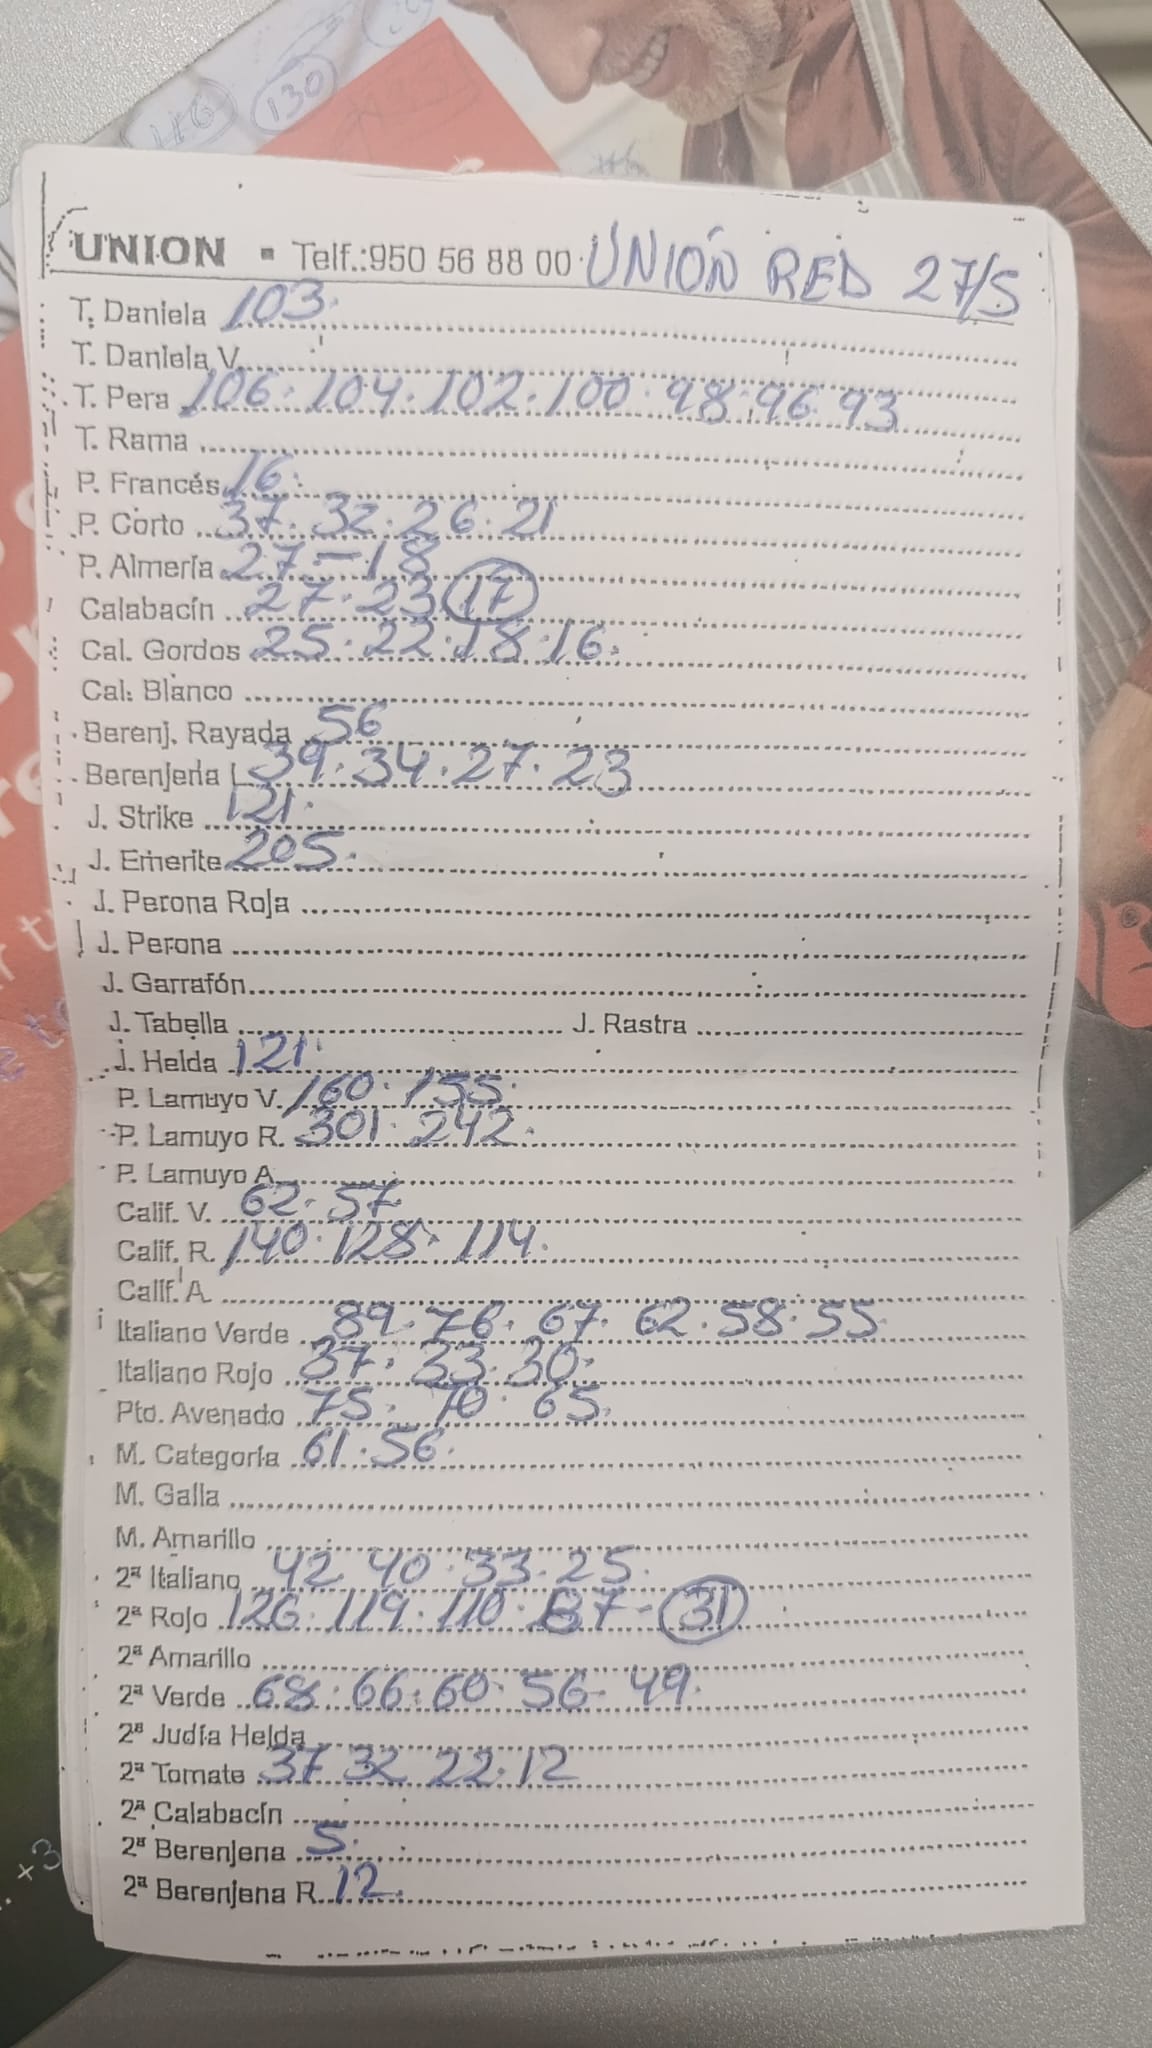 116 130
UNION - Telf.:950 56 88 00 UNIÓN RED 27/5
T. Daniela 103.
T. Daniela V.
T. Pera 106. 104. 102. 100. 98. 96. 93
T. Rama
P. Francés 16.
P. Corto 37. 32. 26. 21
P. Almería 27-18
Calabacín 27. 23 17
Cal. Gordos 25. 22. 18. 16.
Cal. Blanco
Berenj. Rayada 56
Berenjena L 39. 34. 27. 23
J. Strike 121.
J. Emerite 205.
J. Perona Roja
J. Perona
J. Garrafón
J. Tabella J. Rastra
J. Helda 121.
P. Lamuyo V. 160. 155.
P. Lamuyo R. 301. 242.
P. Lamuyo A.
Calif. V. 62. 57
Calif. R. 140. 128. 114.
Calif. A.
Italiano Verde 89. 76. 67. 62. 58. 55.
Italiano Rojo 37. 33. 30.
Pto. Avenado 75. 70. 65.
M. Categoría 61. 56.
M. Galia
M. Amarillo
2ª Italiano 42 40. 33. 25.
2ª Rojo 126. 119. 110. 87- 31
2ª Amarillo
2ª Verde 68. 66. 60. 56. 49.
2ª Judía Helda
2ª Tomate 37 32 22. 12
2ª Calabacín
2ª Berenjena 5.
2ª Berenjena R. 12.
+3